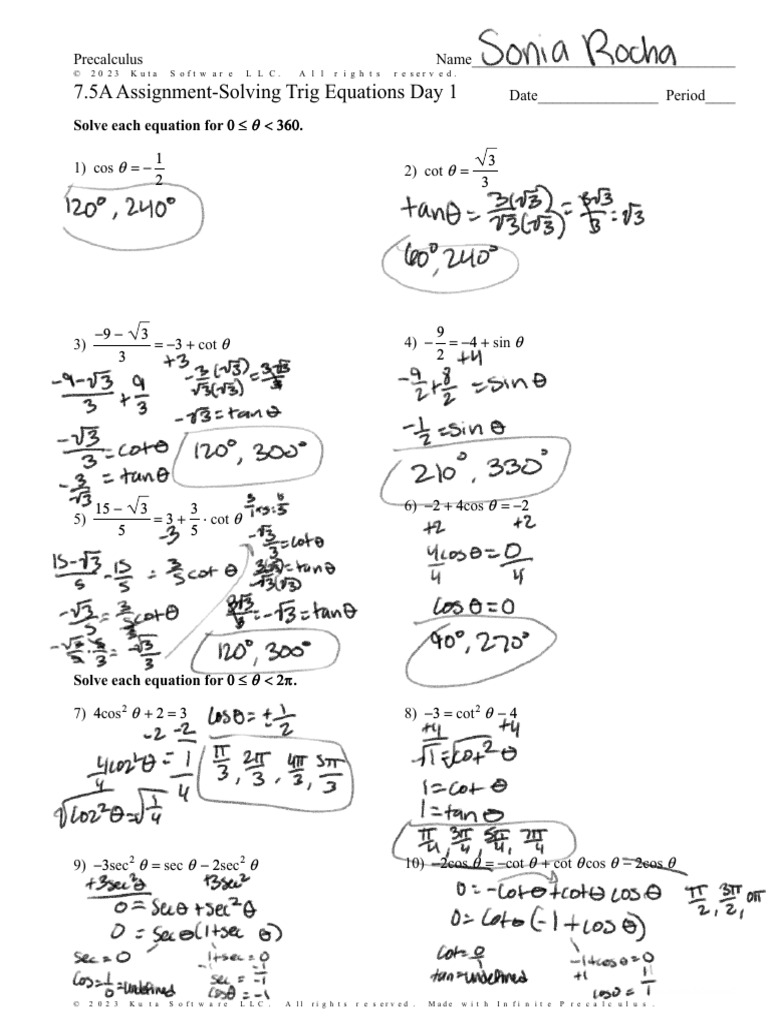 Precalculus
Name Sonia Rocha
© 2023 Kuta Software LLC. All rights reserved.
7.5A Assignment-Solving Trig Equations Day 1
Date________________ Period____
Solve each equation for 0 ≤ θ < 360.
1) cos θ = −1/2
120°, 240°
2) cot θ = √3/3
tanθ = 3(√3)/√3(√3) = 3√3/3 = √3
60°, 240°
3) (−9 − √3)/3 = −3 + cot θ
+3
(−9−√3)/3 + 9/3
−√3/3 = cotθ
−3/√3 = tanθ
−3(√3)/√3(√3) = 3√3/3
−√3 = tanθ
120°, 300°
4) −9/2 = −4 + sin θ
+4
−9/2 + 8/2 = sinθ
−1/2 = sinθ
210°, 330°
5) (15 − √3)/5 = 3 + 3/5 · cot θ
−3
(15−√3)/5 − 15/5 = 3/5 cotθ
−√3/5 = 3/5 cotθ
−√3/5 · 5/3 = −√3/3
−√3/3 = cotθ
3(√3)/−√3(√3) = tanθ
3√3/3 = −√3 = tanθ
120°, 300°
6) −2 + 4cos θ = −2
+2 +2
4cosθ/4 = 0/4
cosθ = 0
90°, 270°
Solve each equation for 0 ≤ θ < 2π.
7) 4cos² θ + 2 = 3
−2 −2
4cos²θ/4 = 1/4
√cos²θ = √1/4
cosθ = ±1/2
π/3, 2π/3, 4π/3, 5π/3
8) −3 = cot² θ − 4
+4 +4
√1 = √cot²θ
1 = cot θ
1 = tan θ
π/4, 3π/4, 5π/4, 7π/4
9) −3sec² θ = sec θ − 2sec² θ
+3sec²θ +3sec²
0 = secθ + sec²θ
0 = secθ(1+sec θ)
sec = 0
cos = 1/0 = undefined
1+sec = 0
−1 −1
sec = −1/1
cosθ = −1
10) −2cos θ = −cot θ + cot θcos θ − 2cos θ
0 = −cotθ + cotθ cosθ
0 = cotθ(−1 + cosθ)
π/2, 3π/2, 0π
cot = 0/1
tan = undefined
−1+cosθ = 0
+1 1
cosθ = 1/1
© 2023 Kuta Software LLC. All rights reserved. Made with Infinite Precalculus.